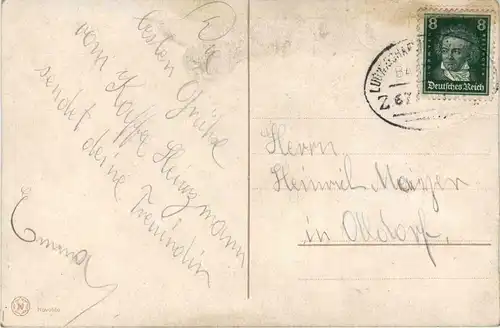 Die
besten Grüße
vom Kaffe Herrzmann
sendet deine Freundin
Emma
Herrn
Heinrich Maizer
in Alldorf.
8 8
Deutsches Reich
LUDWIGSHAF
Z. 67
N
Novitas